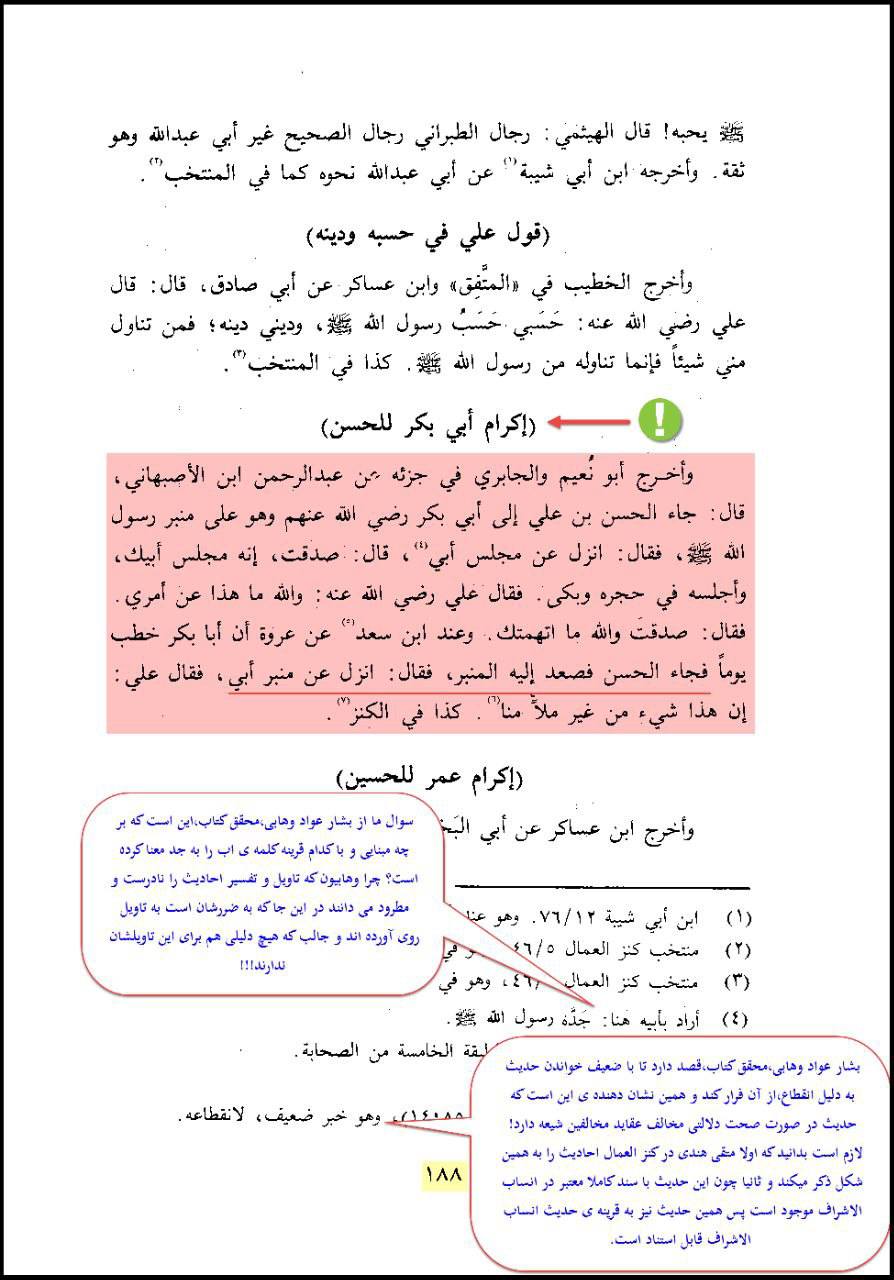 ﷺ يحبه! قال الهيثمي: رجال الطبراني رجال الصحيح غير أبي عبدالله وهو
ثقة. وأخرجه ابن أبي شيبة(١) عن أبي عبدالله نحوه كما في المنتخب(٢).
(قول علي في حسبه ودينه)
وأخرج الخطيب في «المتَّفِق» وابن عساكر عن أبي صادق، قال: قال
علي رضي الله عنه: حَسَبي حَسَبُ رسول الله ﷺ، وديني دينه؛ فمن تناول
مني شيئاً فإنما تناوله من رسول الله ﷺ. كذا في المنتخب(٣).
(إكرام أبي بكر للحسن)
!
وأخرج أبو نُعيم والجابري في جزئه عن عبدالرحمن ابن الأصبهاني،
قال: جاء الحسن بن علي إلى أبي بكر رضي الله عنهم وهو على منبر رسول
الله ﷺ، فقال: انزل عن مجلس أبي(٤)، قال: صدقت، إنه مجلس أبيك،
وأجلسه في حجره وبكى. فقال علي رضي الله عنه: والله ما هذا عن أمري.
فقال: صدقتَ والله ما اتهمتك. وعند ابن سعد(٥) عن عروة أن أبا بكر خطب
يوماً فجاء الحسن فصعد إليه المنبر، فقال: انزل عن منبر أبي، فقال علي:
إن هذا شيء من غير ملأٍ منا(٦). كذا في الكنز(٧).
(إكرام عمر للحسين)
وأخرج ابن عساكر عن أبي
سوال ما از بشار عواد وهابی،محقق کتاب،این است که بر
چه مبنایی و با کدام قرینه کلمه ی اب را به جد معنا کرده
است؟ چرا وهابیون که تاویل و تفسیر احادیث را نادرست و
مطرود می دانند در این جا که به ضررشان است به تاویل
روی آورده اند و جالب که هیچ دلیلی هم برای این تاویلشان
ندارند!!!
(١) ابن أبي شيبة ٧٦/١٢. وهو
(٢) منتخب كنز العمال ٤٦/٥
(٣) منتخب كنز العمال ٤٦، وهو في
(٤) أراد بأبيه هنا: جَدَّه رسول الله ﷺ.
الخامسة من الصحابة.
وهو خبر ضعيف، لانقطاعه.
بشار عواد وهابی،محقق کتاب،قصد دارد تا با ضعیف خواندن حدیث
به دلیل انقطاع،از آن فرار کند و همین نشان دهنده ی این است که
حدیث در صورت صحت دلالتی مخالف عقاید مخالفین شیعه دارد!
لازم است بدانید که اولا متقی هندی در کنز العمال احادیث را به همین
شکل ذکر میکند و ثانیا چون این حدیث با سند کاملا معتبر در انساب
الاشراف موجود است پس همین حدیث نیز به قرینه ی حدیث انساب
الاشراف قابل استناد است.
١٨٨